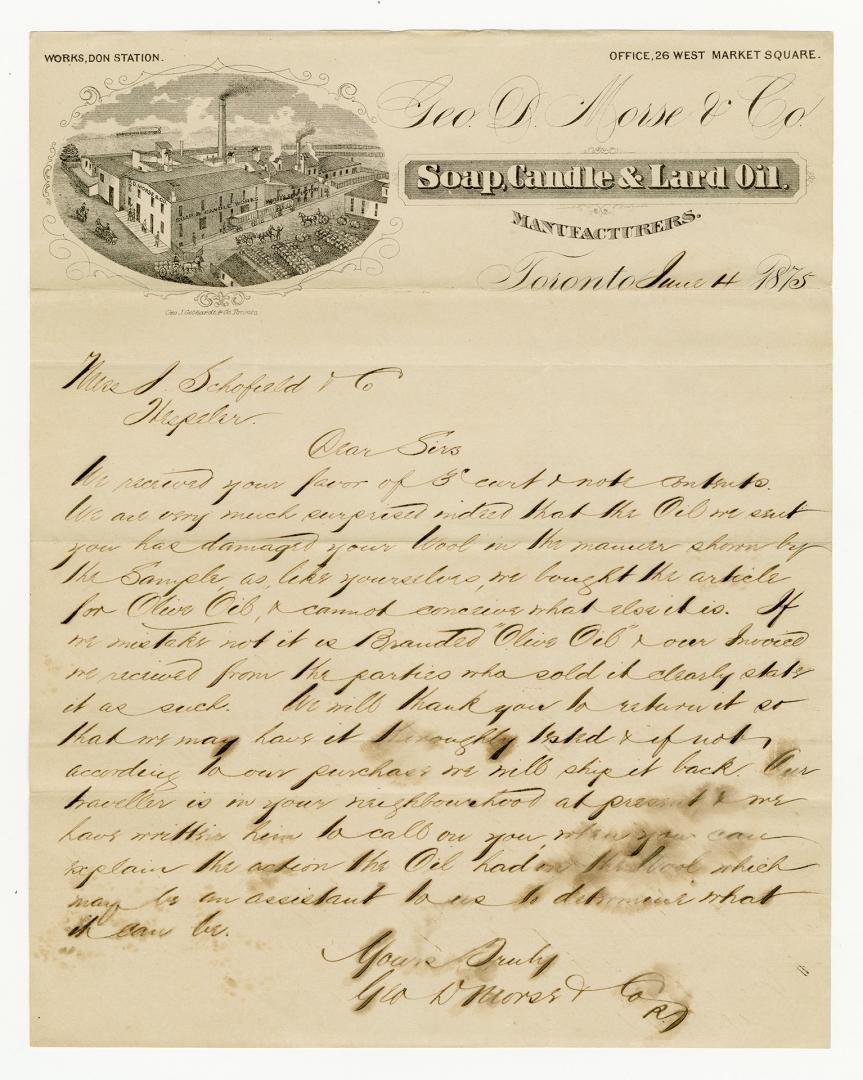 WORKS, DON STATION.
OFFICE, 26 WEST MARKET SQUARE.
Geo. D. Morse & Co.
Soap, Candle & Lard Oil.
MANUFACTURERS.
Toronto June 4 1875
G.D. MORSE & CO.
SOAP & CANDLE WORKS
Mess J. Schofield & Co
Hespeler.
Dear Sirs
We received your favor of 3d curt & note contents.
We are very much surprised indeed that the Oil we sent
you has damaged your Wool in the manner shown by
the Sample, as, like yourselves, we bought the article
for Olive Oil, & cannot conceive what else it is. If
we mistake not it is Branded "Olive Oil" & our Invoice
we received from the parties who sold it clearly state
it as such. We will thank you to return it so
that we may have it thoroughly tested & if not,
according to our purchase we will ship it back. Our
traveller is in your neighbourhood at present & we
have written him to call on you, when you can
explain the action the Oil had on the Wool which
may be an assistant to us to determine what
it can be.
Yours Truly
Geo D Morse & Co